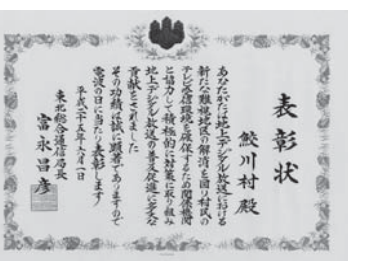 表彰状
鮫川村殿
あなたがたは地上デジタル放送における
新たな難視地区の解消を図り村民の
テレビ受信環境を確保するため関係機関
と協力して積極的に対策に取り組み
地上デジタル放送の普及促進に多大な
貢献をされました
その功績は誠に顕著でありますので
電波の日に当たり表彰します
平成二十五年六月一日
東北総合通信局長
富永昌彦